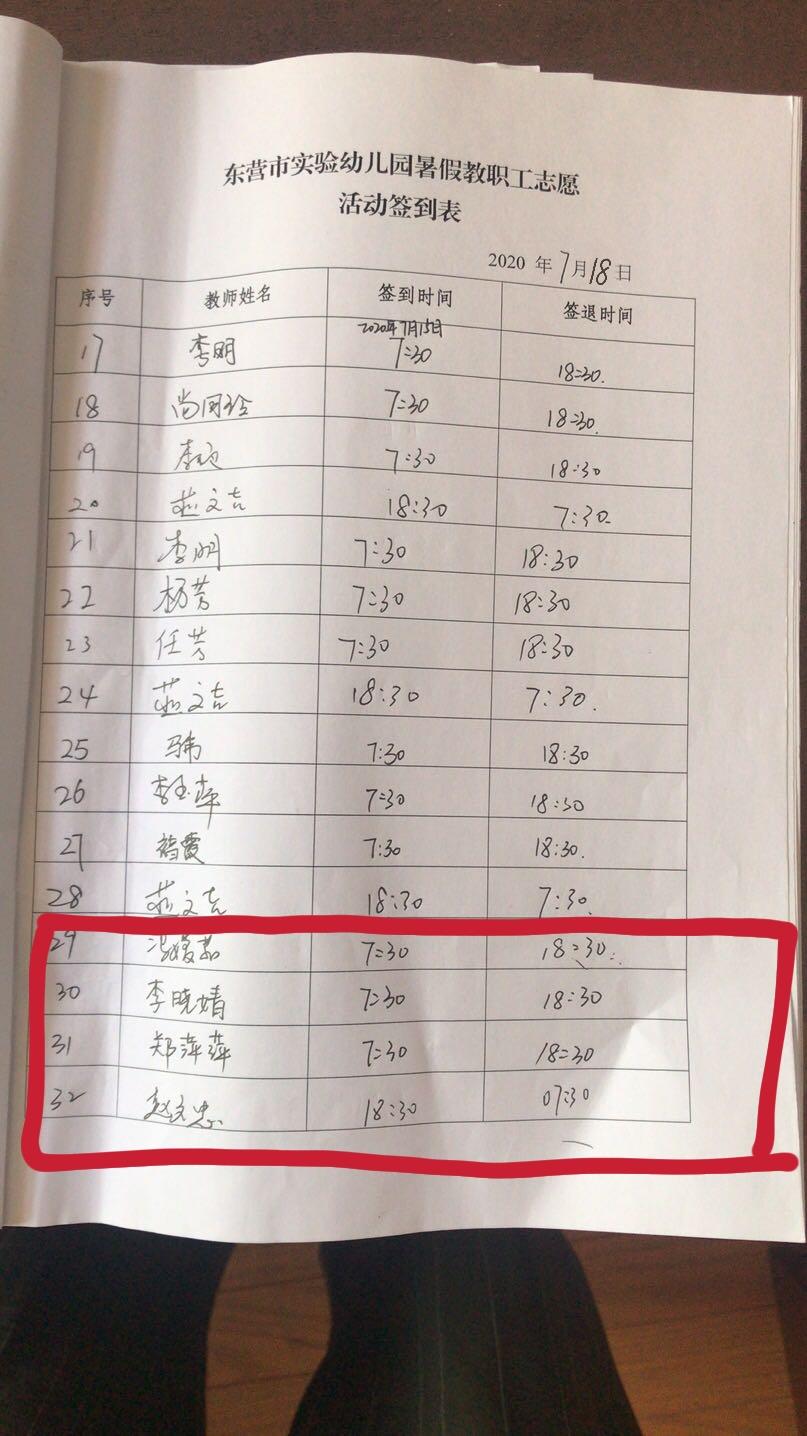 东营市实验幼儿园暑假教职工志愿
活动签到表
2020 年 7月18日
序号 教师姓名 签到时间 签退时间
2020年7月15日
17 李明 7:30 18:30.
18 尚同玲 7:30 18:30.
19 7:30 18:30
20 18:30 7:30.
21 李明 7:30 18:30
22 杨芳 7:30 18:30
23 任芳 7:30 18:30
24 18:30 7:30.
25 马韦 7:30 18:30
26 李玉萍 7:30 18:30
27 褚霞 7:30 18:30.
28 18:30 7:30.
29 7:30 18:30.
30 李晓婧 7:30 18:30
31 郑萍萍 7:30 18:30
32 赵文忠 18:30 07:30